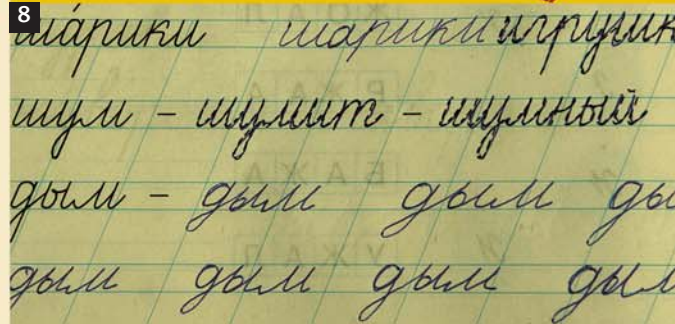 8
ша́рики шарики игрушк
шум – шумит – шумный
дым – дым дым ды
дым дым дым дым